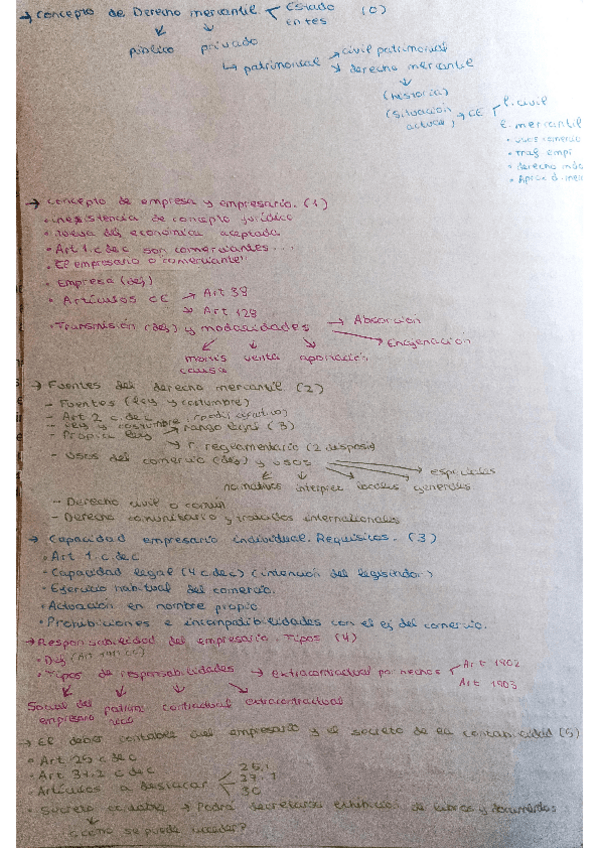 → Concepto de Derecho mercantil. Estado (0)
entes
público privado
↳ patrimonial → civil patrimonial
↘ derecho mercantil
(historia)
(situación actual) → CE
l. civil
l. mercantil
• usos comercio
• Traf empi
• derecho
• Aplica d.
→ Concepto de empresa y empresario. (1)
• inexistencia de concepto jurídico
• económica aceptada
• Art 1. c. de c son comerciantes...
• El empresario o comerciante
• Empresa (def)
• Artículos CC → Art 38
↘ Art 128
• Transmisión (def) y modalidades → Absorción
Enajenación
mortis causa venta aportación
→ Fuentes del derecho mercantil (2)
- Fuentes (ley y costumbre)
- Art 2 c. de c.
- Ley y costumbre
- Propia ley → rango (3)
↘ r. reglamentario (2 desposi
- Usos del comercio (def) y usos
especiales
normativos interpret locales generales
- Derecho civil o común
- Derecho comunitario y tratados internacionales
→ Capacidad empresario individual. Requisitos. (3)
• Art 1. c. de c
• Capacidad legal (4 c. de c) (intención del legislador)
• Ejercicio habitual del comercio.
• Actuación en nombre propio
• Prohibiciones e incompatibilidades con el ej del comercio.
→ Responsabilidad del empresario. Tipos (4)
• Def (Art 1911 CC)
• Tipos de responsabilidades → extracontractual por hechos Art 1902
Art 1903
Social del empresario patrim contractual extracontractual
→ El deber contable del empresario y el secreto de la contabilidad (5)
• Art 25 c de c
• Art 37.2 c de c
• Artículos a destacar 26.1
27.1
30
• Secreto contable → Podrá secretarse exhibición de libros y documentos
¿Cómo se puede acceder?